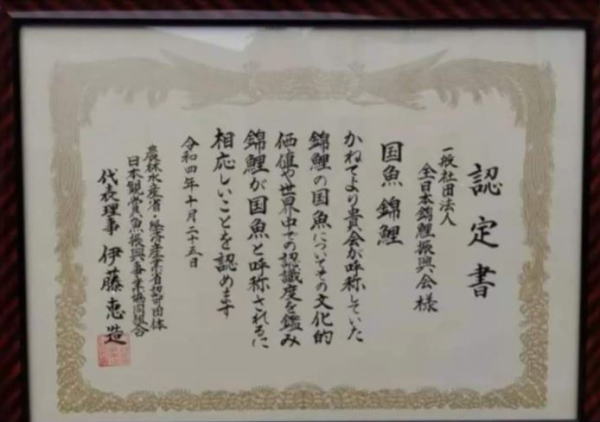 認定書
一般社団法人
全日本錦鯉振興会 様
国魚 錦鯉
かねてより貴会が呼称していた
錦鯉の国魚についてその文化的
価値や世界中での認識度を鑑み
錦鯉が国魚と呼称されるに
相応しいことを認めます
令和四年十月二十五日
農林水産省・経済産業省認可団体
日本観賞魚振興事業協同組合
代表理事 伊藤恵造